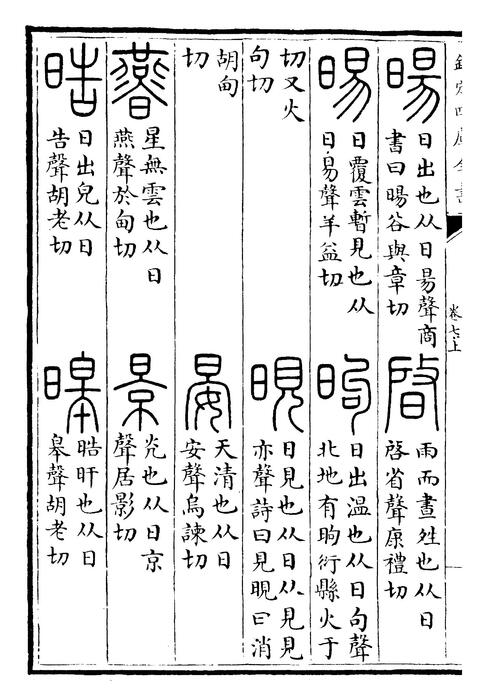 欽定四庫全書
卷七上
暘
日出也从日昜聲商
書曰暘谷與章切
晵
雨而晝姓也从日
啓省聲康禮切
晹
日覆雲暫見也从
日易聲羊益切
昫
日出温也从日句聲
北地有昫衍縣火于
切又火
句切
晛
日見也从日从見見
亦聲詩曰見晛曰消
胡甸
切
晏
天清也从日
安聲烏諫切
㬫
星無雲也从日
燕聲於甸切
景
灮也从日京
聲居影切
晧
日出皃从日
告聲胡老切
暤
晧旰也从日
皋聲胡老切